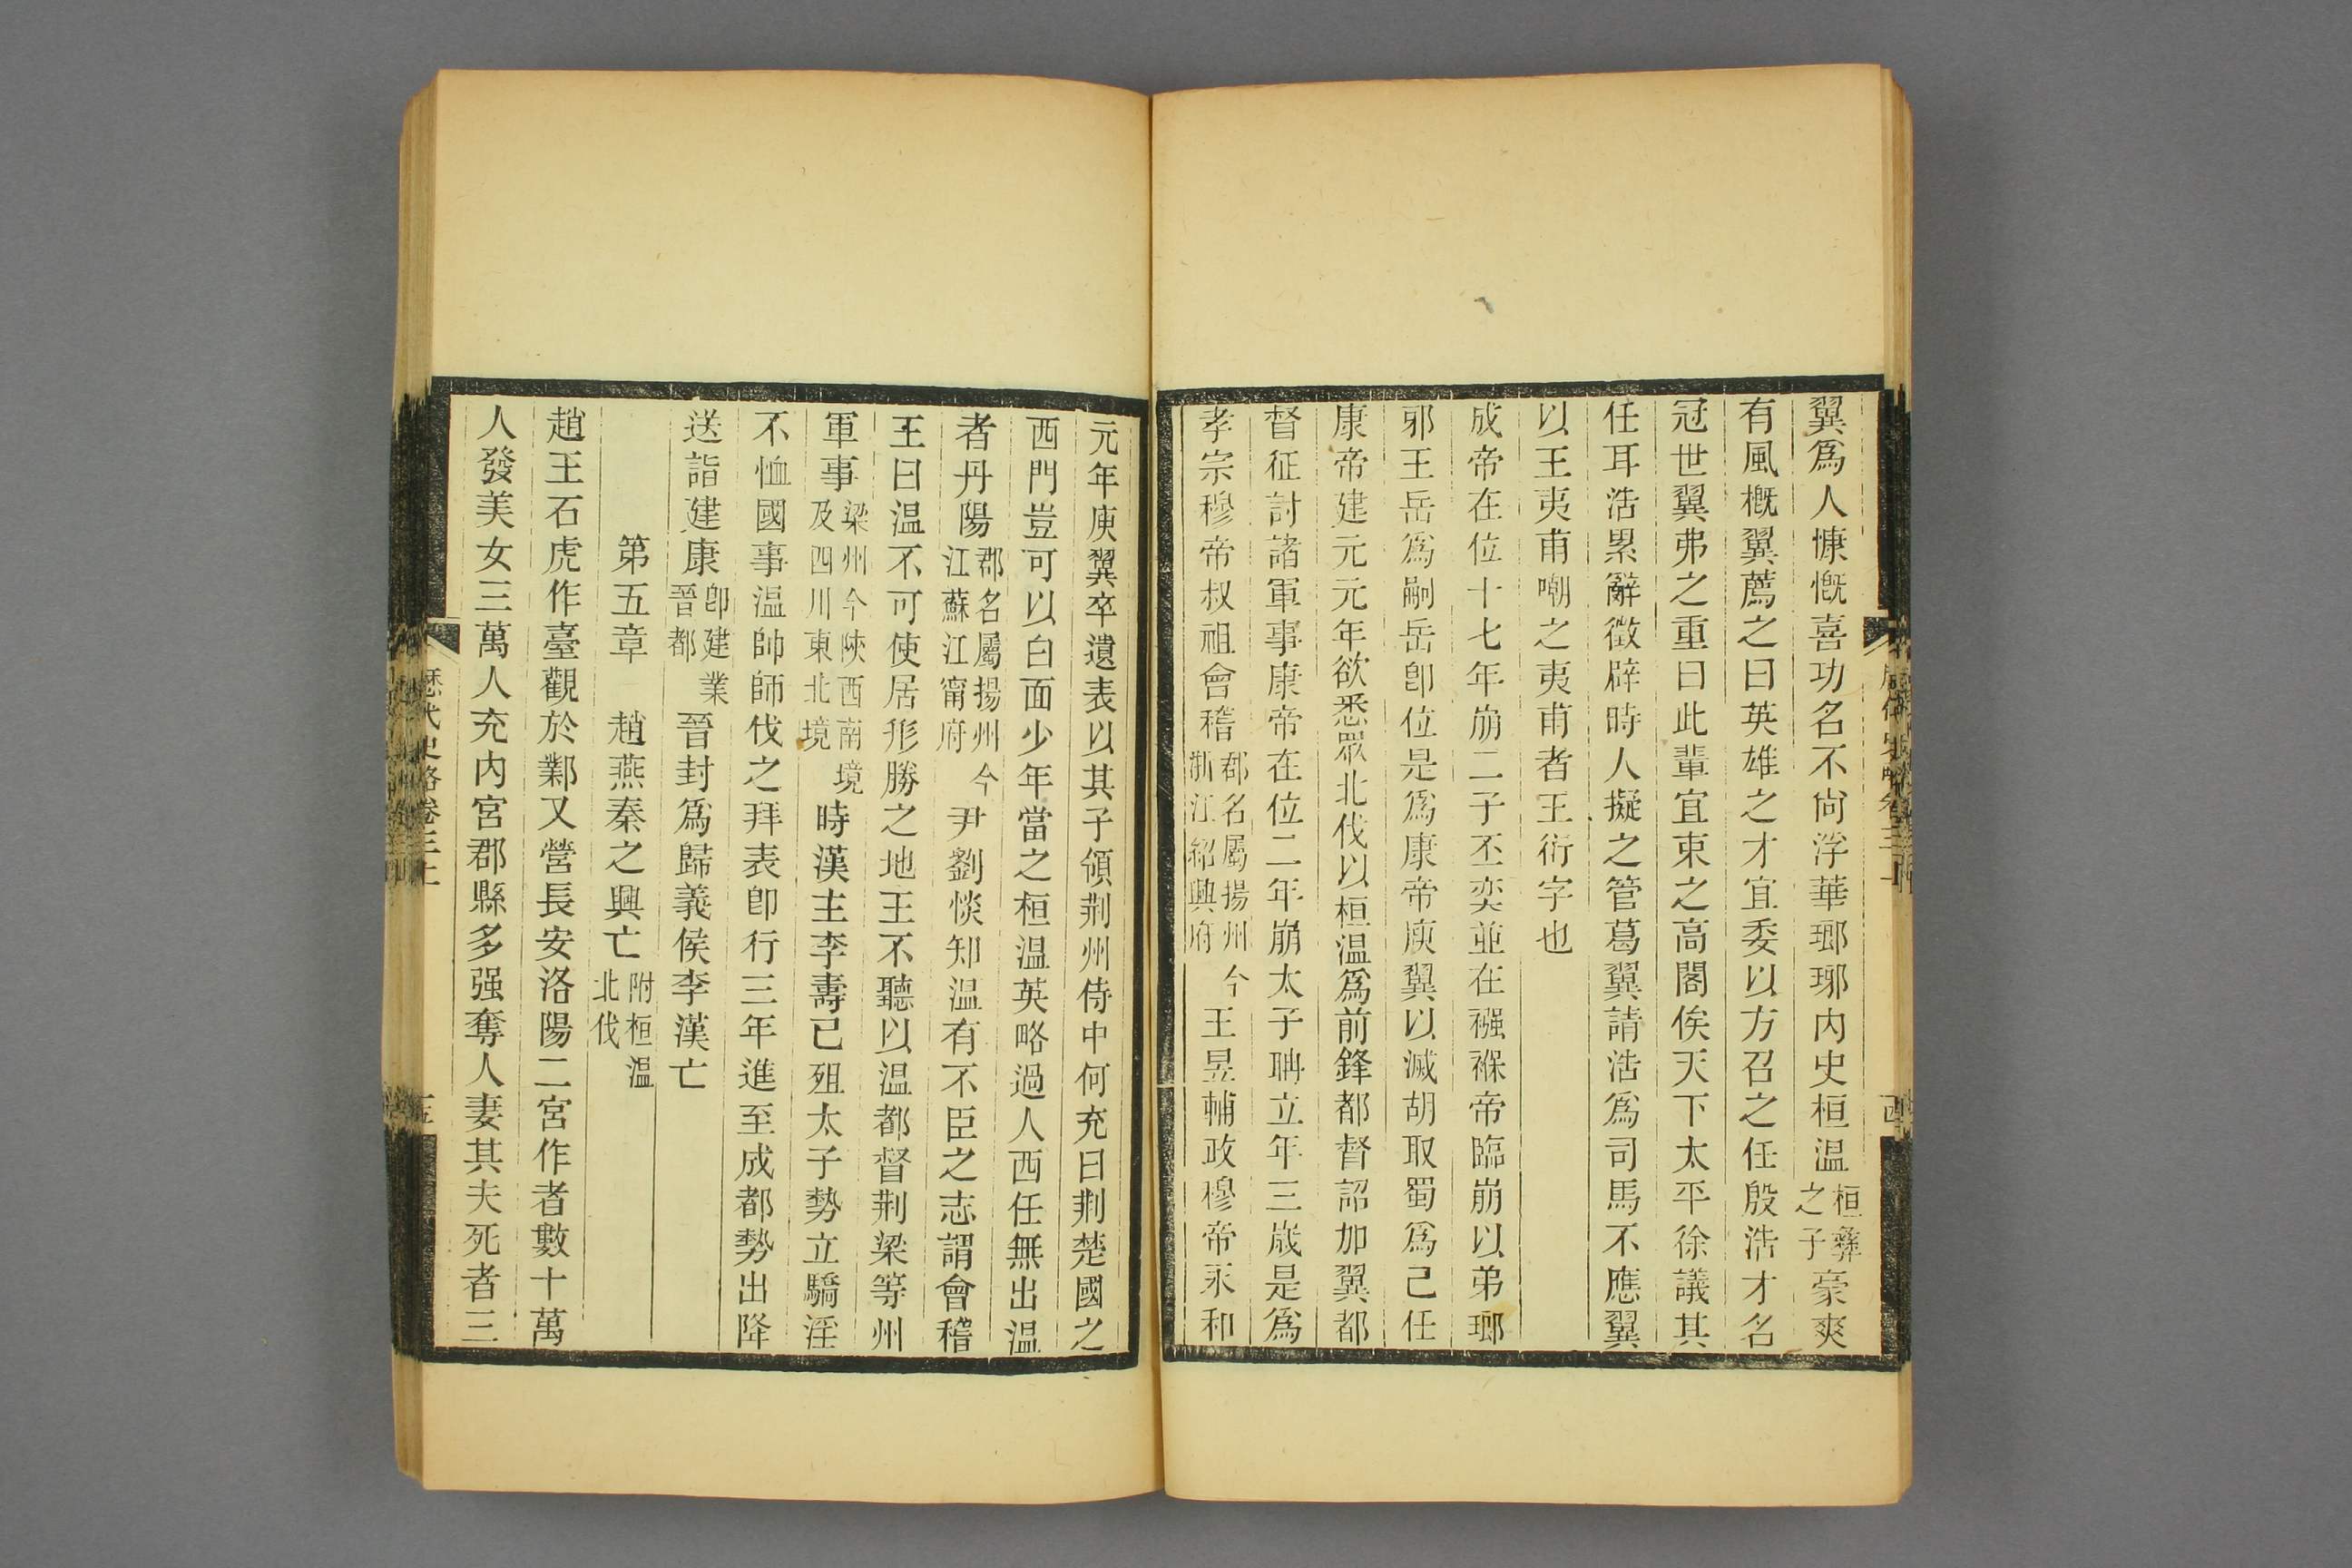 翼爲人慷慨喜功名不尙浮華瑯琊内史桓温桓彝之子豪爽
有風概翼薦之曰英雄之才宜委以方召之任殷浩才名
冠世翼弗之重曰此輩宜束之高閣俟天下太平徐議其
任耳浩累辭徵辟時人擬之管葛翼請浩爲司馬不應翼
以王夷甫嘲之夷甫者王衍字也
成帝在位十七年崩二子丕奕並在襁褓帝臨崩以弟瑯
邪王岳爲嗣岳卽位是爲康帝庾翼以滅胡取蜀爲己任
康帝建元元年欲悉眾北伐以桓温爲前鋒都督詔加翼都
督征討諸軍事康帝在位二年崩太子聃立年三歲是爲
孝宗穆帝叔祖會稽郡名屬揚州今浙江紹興府王昱輔政穆帝永和
元年庾翼卒遺表以其子領荆州侍中何充曰荆楚國之
西門豈可以白面少年當之桓温英略過人西任無出温
者丹陽郡名屬揚州今江蘇江甯府尹劉惔知温有不臣之志謂會稽
王曰温不可使居形勝之地王不聽以温都督荆梁等州
軍事梁州今陝西南境及四川東北境時漢主李壽已殂太子勢立驕淫
不恤國事温帥師伐之拜表卽行三年進至成都勢出降
送詣建康卽建業晉都晉封爲歸義侯李漢亡
第五章　趙燕秦之興亡附桓温北伐
趙王石虎作臺觀於鄴又營長安洛陽二宮作者數十萬
人發美女三萬人充内宮郡縣多强奪人妻其夫死者三
歷代史略卷三上